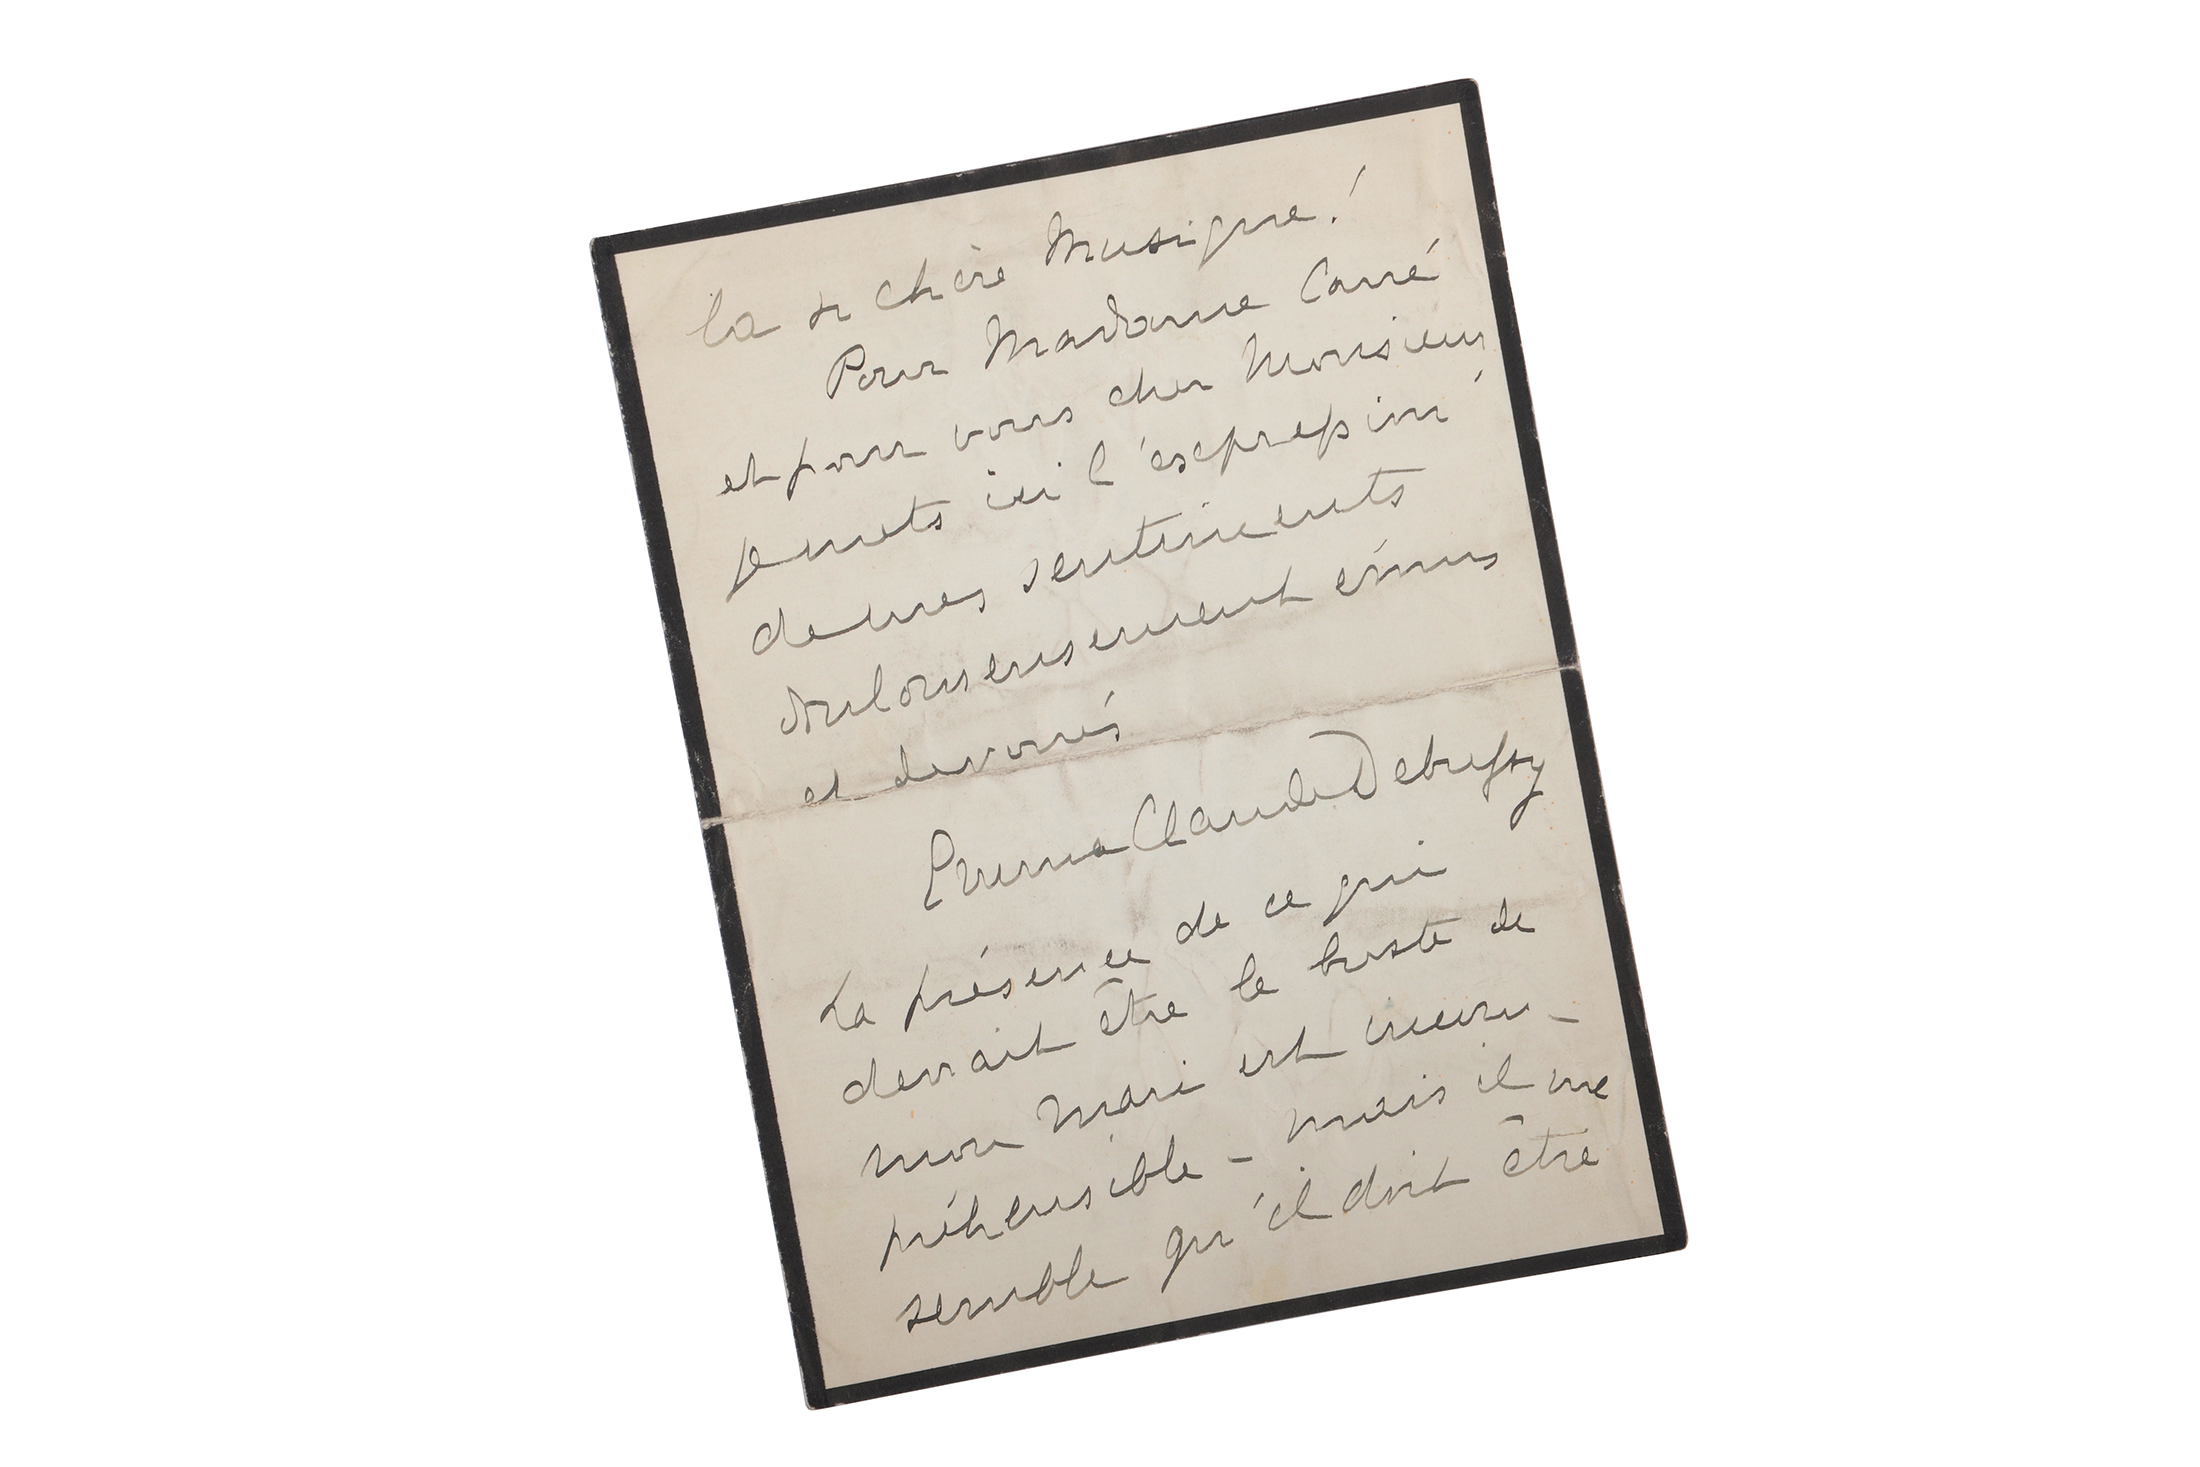 la si chère Musique!
Pour Madame Carré
et pour vous cher Monsieur
je mets ici l'expression
de mes sentiments
douloureusement émus
et dévoués
Emma Claude Debussy
La présence de ce qui
devrait être le buste de
mon mari est incom-
préhensible – mais il me
semble qu'il doit être